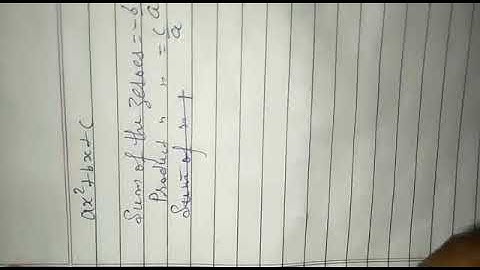 ax²+bx+c
Sum of the zeroes = -b/a
Product " " = c/a
Sum of